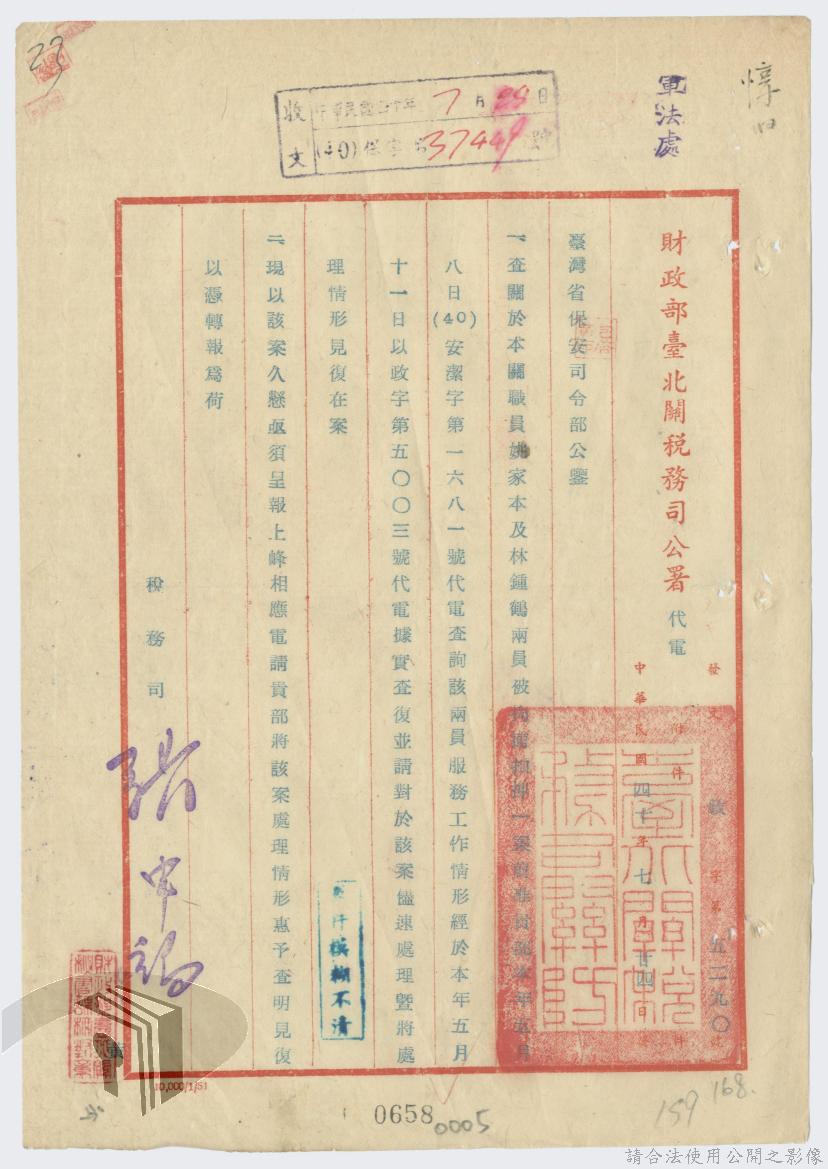 軍法處
收文
中華民國四十年7月28日
(40)保字第37449號
財政部臺北關稅務司公署代電
發文政字第五二九〇號
附件 件
中華民國四十年七月廿四日
臺灣省保安司令部公鑒
一、查關於本關職員姚家本及林鍾鶴兩員被拘 一案前准貴部本年五月
八日(40)安潔字第一六八一號代電查詢該兩員服務工作情形經於本年五月
十一日以政字第五〇〇三號代電據實查復並請對於該案儘速處理暨將處
理情形見復在案
二、現以該案久懸亟須呈報上峰相應電請貴部將該案處理情形惠予查明見復
以憑轉報爲荷
稅務司
張申福
模糊不清
10,000/1/51
0658
0005
159
168.
請合法使用公開之影像